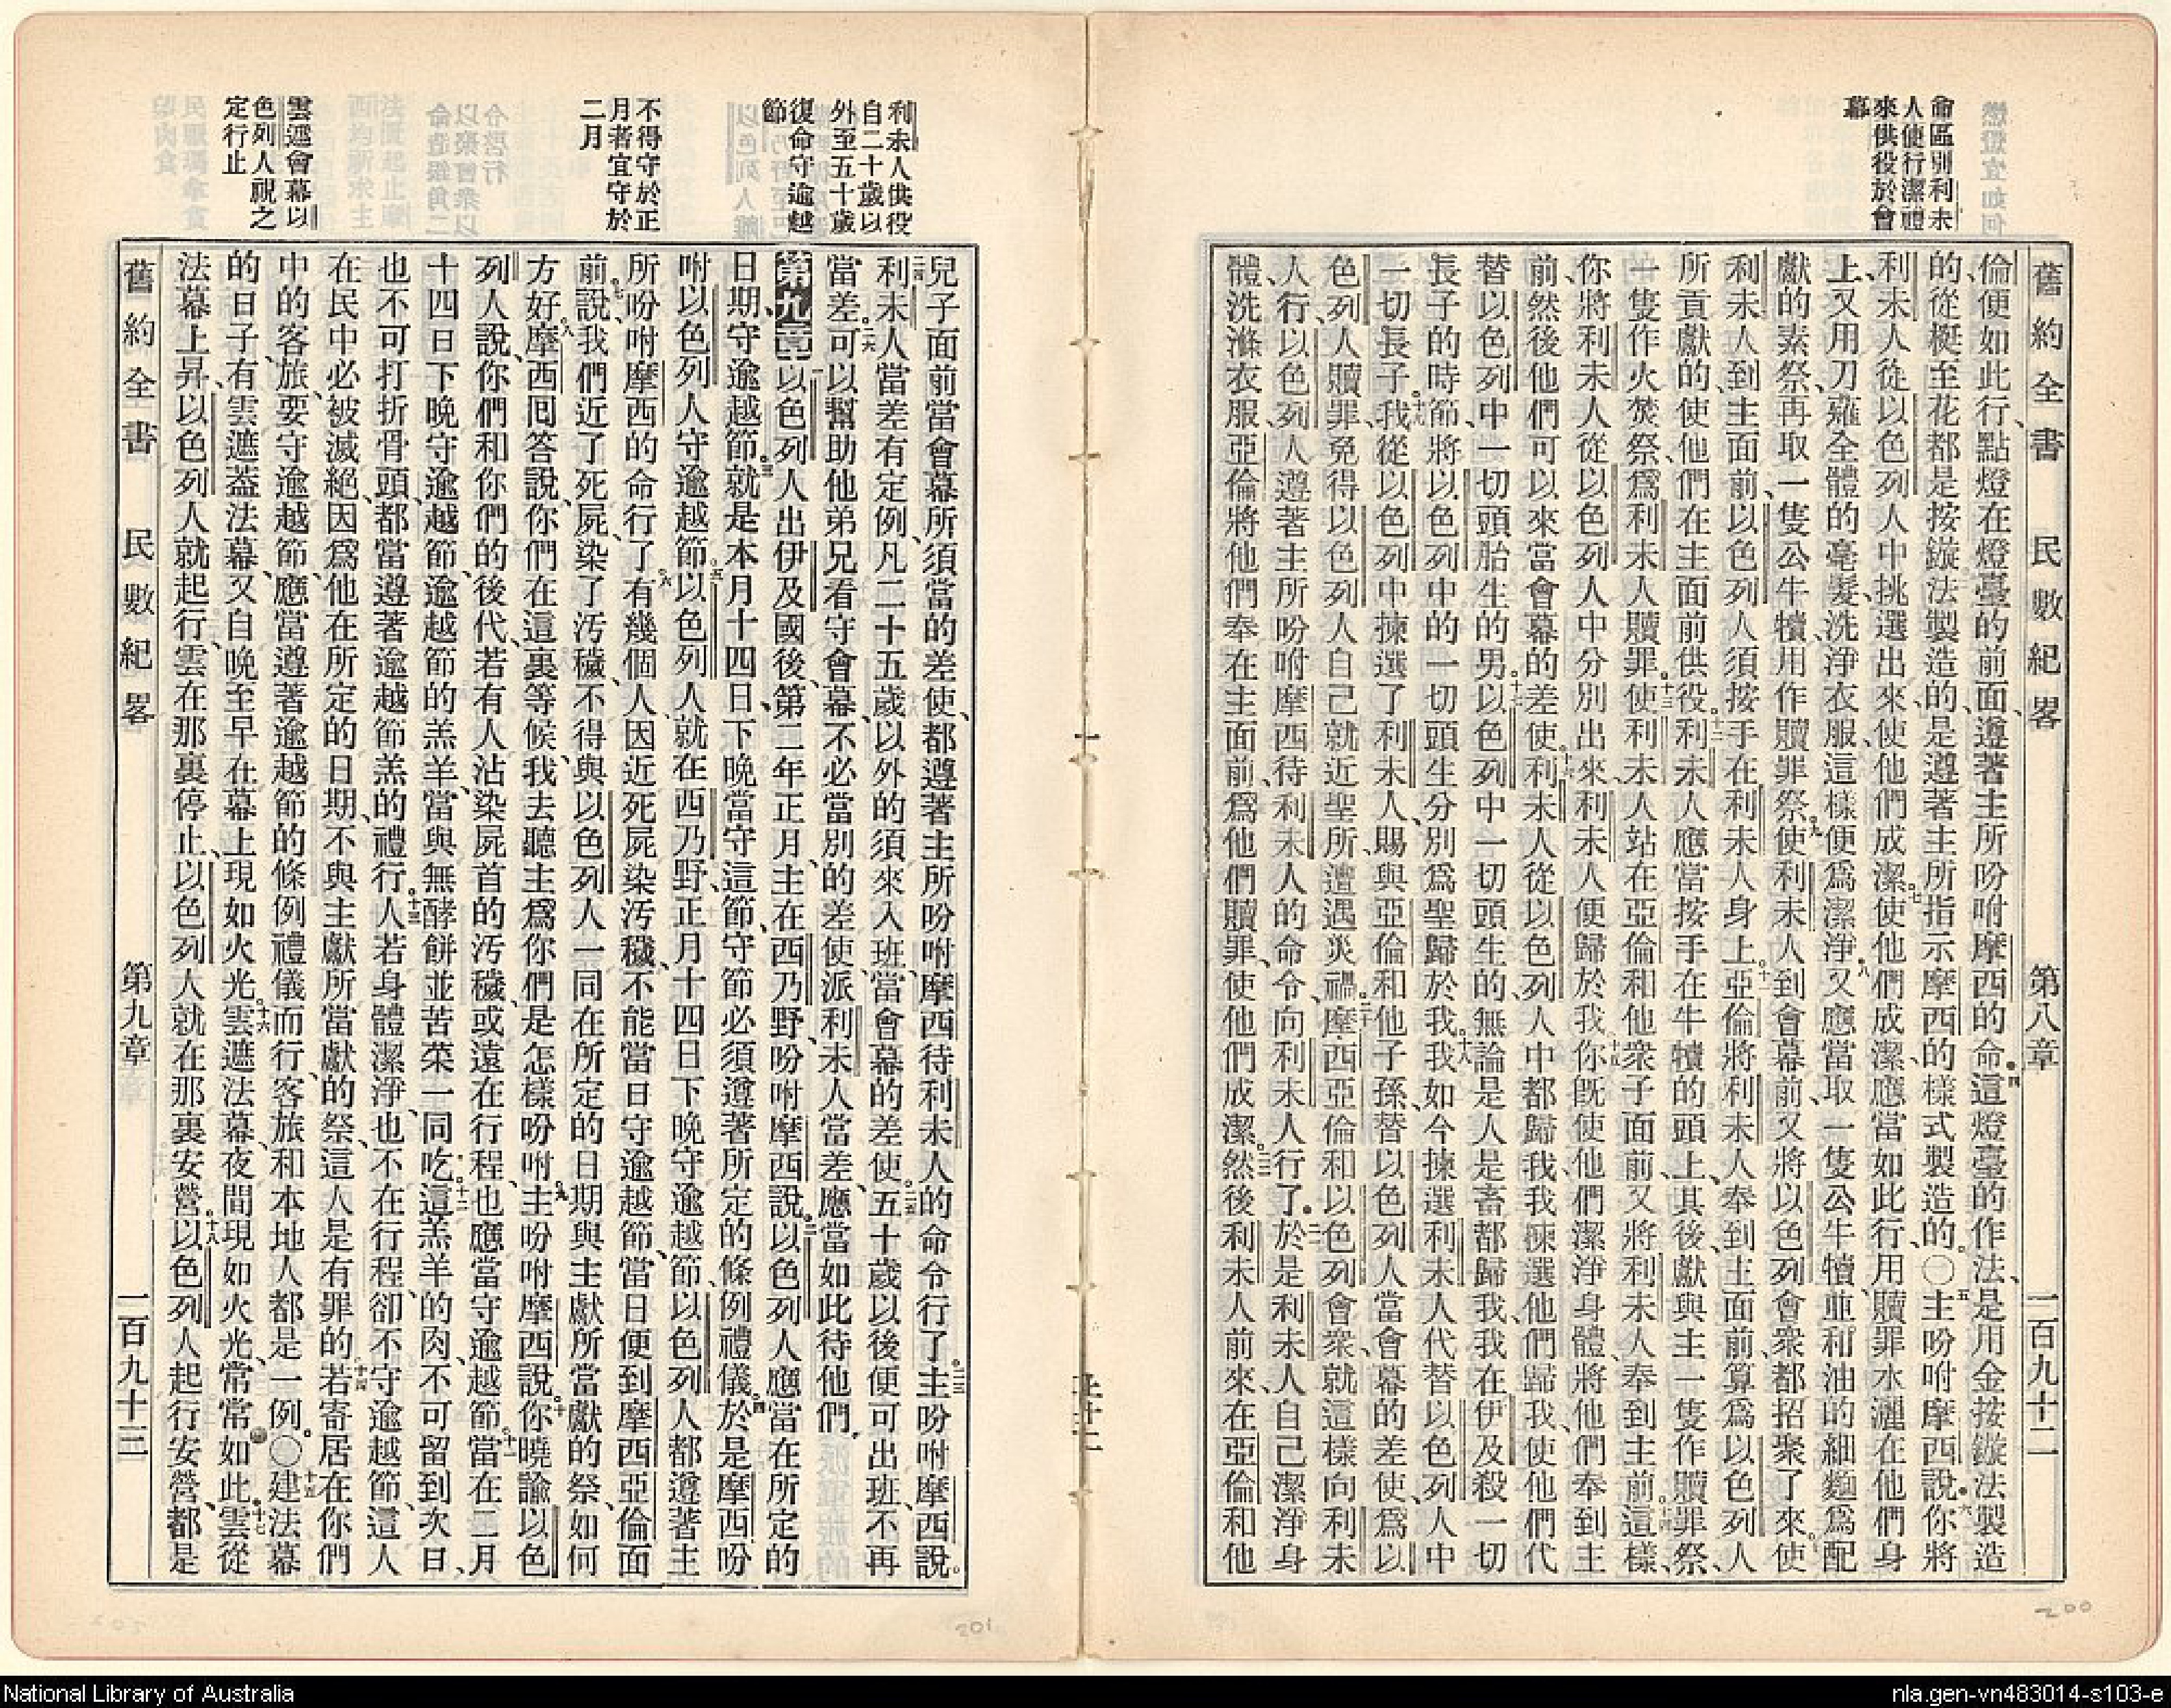 命區別利未
人使行潔禮
來供役於會
幕
舊約全書 民數紀畧 第八章 一百九十二
倫便如此行、點燈在燈臺的前面、遵著主所吩咐摩西的命。四這燈臺的作法、是用金按鏇法製造
的、從梃至花、都是按鏇法製造的、是遵著主所指示摩西的樣式製造的。〇五主吩咐摩西說、六你將
利未人從以色列人中挑選出來、使他們成潔。七使他們成潔、應當如此行、用贖罪水灑在他們身
上、又用刀薙全體的毫髮、洗淨衣服、這樣便爲潔淨。八又應當取一隻公牛犢、並和油的細麵爲配
獻的素祭、再取一隻公牛犢用作贖罪祭。九使利未人到會幕前、又將以色列會衆都招聚了來。十使
利未人到主面前、以色列人須按手在利未人身上。十一亞倫將利未人奉到主面前、算爲以色列人
所貢獻的、使他們在主面前供役。十二利未人應當按手在牛犢的頭上、其後獻與主一隻作贖罪祭、
一隻作火焚祭、爲利未人贖罪。十三使利未人站在亞倫和他衆子面前、又將利未人奉到主前。十四這樣、
你將利未人從以色列人中分別出來、利未人便歸於我。十五你旣使他們潔淨身體、將他們奉到主
前、然後他們可以來當會幕的差使。十六利未人從以色列人中都歸我、我揀選他們歸我、使他們代
替以色列中一切頭胎生的男。十七以色列中一切頭生的、無論是人是畜都歸我、我在伊及殺一切
長子的時節、將以色列中的一切頭生分別爲聖歸於我。十八我如今揀選利未人代替以色列人中
一切長子。十九我從以色列中揀選了利未人、賜與亞倫和他子孫、替以色列人當會幕的差使、爲以
色列人贖罪、免得以色列人自己就近聖所、遭遇災禍。二十摩西亞倫和以色列會衆、就這樣向利未
人行、以色列人遵著主所吩咐摩西待利未人的命令、向利未人行了。二一於是利未人自己潔淨身
體、洗滌衣服、亞倫將他們奉在主面前、爲他們贖罪、使他們成潔。二二然後利未人前來、在亞倫和他
利未人供役
自二十歲以
外至五十歲
復命守逾越
節
不得守於正
月者宜守於
二月
雲遮會幕以
色列人視之
定行止
兒子面前當會幕所須當的差使、都遵著主所吩咐摩西待利未人的命令行了。二三主吩咐摩西說。
二四利未人當差有定例、凡二十五歲以外的、須來入班、當會幕的差使。二五五十歲以後便可出班、不再
當差。二六可以幫助他弟兄看守會幕、不必當別的差使、派利未人當差、應當如此待他們。
第九章 一以色列人出伊及國後、第二年正月、主在西乃野、吩咐摩西說。二以色列人應當在所定的
日期、守逾越節。三就是本月十四日下晚、當守這節、守節必須遵著所定的條例禮儀。四於是摩西吩
咐以色列人守逾越節。五以色列人就在西乃野、正月十四日下晚守逾越節、以色列人都遵著主
所吩咐摩西的命行了。六有幾個人、因近死屍染汚穢、不能當日守逾越節、當日便到摩西亞倫面
前。七說、我們近了死屍、染了汚穢、不得與以色列人一同在所定的日期與主獻所當獻的祭、如何
方好。八摩西囘答說、你們在這裏等候、我去聽主爲你們是怎樣吩咐。九主吩咐摩西說。十你曉諭以色
列人說、你們和你們的後代、若有人沾染屍首的汚穢、或遠在行程、也應當守逾越節。十一當在二月
十四日下晚守逾越節、逾越節的羔羊、當與無酵餅並苦菜一同吃。十二這羔羊的肉、不可留到次日、
也不可打折骨頭、都當遵著逾越節羔的禮行。十三人若身體潔淨、也不在行程、卻不守逾越節、這人
在民中必被滅絕、因爲他在所定的日期、不與主獻所當獻的祭、這人是有罪的。十四若寄居在你們
中的客旅、要守逾越節、應當遵著逾越節的條例禮儀而行、客旅和本地人都是一例。〇十五建法幕
的日子、有雲遮蓋法幕、又自晚至早在幕上現如火光。十六雲遮法幕、夜間現如火光、常常如此。十七雲從
法幕上昇、以色列人就起行、雲在那裏停止、以色列人就在那裏安營。十八以色列人起行安營、都是
舊約全書 民數紀畧 第九章 一百九十三
200
201
National Library of Australia
nla.gen-vn483014-s103-e